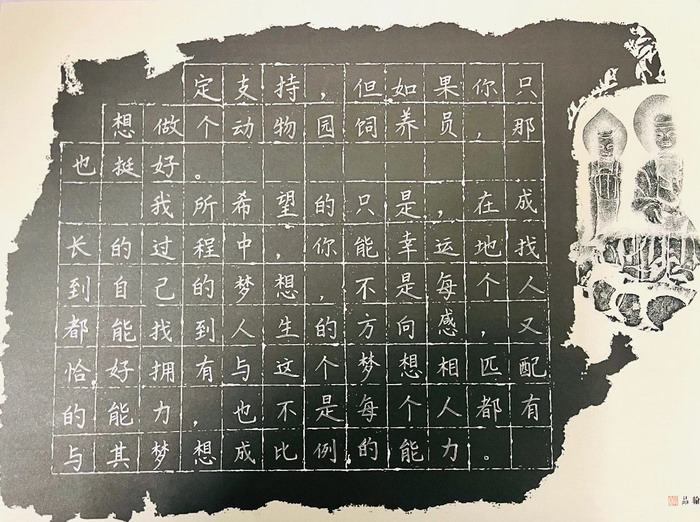 定支持，但如果你只
想做个动物园饲养员，那
也挺好。
我所希望的只是，在成
长的过程中，你能幸运地找
到自己的梦想，不是每个人
都能找到人生的方向感，又
恰好拥有与这个梦想相匹配
的能力，也不是每个人都有
与其梦想成比例的能力。
品翰